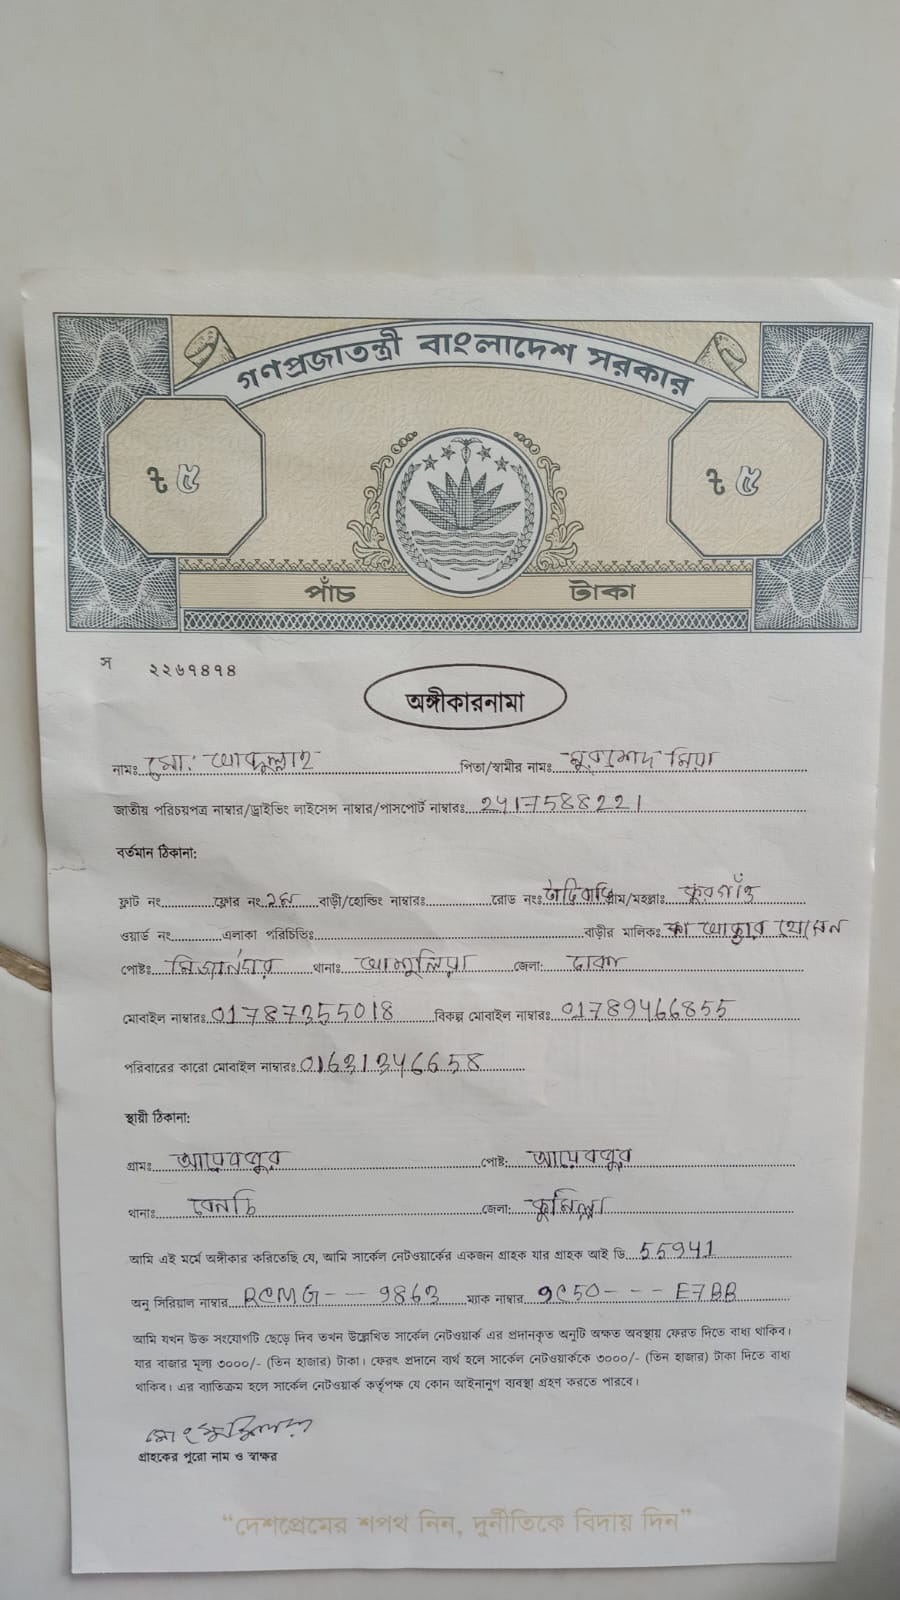 গণপ্রজাতন্ত্রী বাংলাদেশ সরকার
৳ ৫ ৳ ৫
পাঁচ টাকা
স ২২৬৭৪৭৪
অঙ্গীকারনামা
নামঃ মো: পিতা/স্বামীর নামঃ মিয়া
জাতীয় পরিচয়পত্র নাম্বার/ড্রাইভিং লাইসেন্স নাম্বার/পাসপোর্ট নাম্বারঃ 2417588221
বর্তমান ঠিকানা:
ফ্লাট নং ফ্লোর নং বাড়ী/হোল্ডিং নাম্বারঃ রোড নং গ্রাম/মহল্লাঃ
ওয়ার্ড নং এলাকা পরিচিতিঃ বাড়ীর মালিকঃ
পোষ্টঃ মির্জানগর থানাঃ আশুলিয়া জেলা: ঢাকা
মোবাইল নাম্বারঃ 01787355018 বিকল্প মোবাইল নাম্বারঃ 01789466855
পরিবারের কারো মোবাইল নাম্বারঃ 01631346658
স্থায়ী ঠিকানা:
গ্রামঃ পোষ্ট:
থানাঃ জেলা: কুমিল্লা
আমি এই মর্মে অঙ্গীকার করিতেছি যে, আমি সার্কেল নেটওয়ার্কের একজন গ্রাহক যার গ্রাহক আই ডি 55941
অনু সিরিয়াল নাম্বার RCMG - - - 9863 ম্যাক নাম্বার 9C50 - - - E7BB
আমি যখন উক্ত সংযোগটি ছেড়ে দিব তখন উল্লেখিত সার্কেল নেটওয়ার্ক এর প্রদানকৃত অনুটি অক্ষত অবস্থায় ফেরত দিতে বাধ্য থাকিব।
যার বাজার মূল্য ৩০০০/- (তিন হাজার) টাকা। ফেরৎ প্রদানে ব্যর্থ হলে সার্কেল নেটওয়ার্ককে ৩০০০/- (তিন হাজার) টাকা দিতে বাধ্য
থাকিব। এর ব্যতিক্রম হলে সার্কেল নেটওয়ার্ক কর্তৃপক্ষ যে কোন আইনানুগ ব্যবস্থা গ্রহণ করতে পারবে।
গ্রাহকের পুরো নাম ও স্বাক্ষর
“দেশপ্রেমের শপথ নিন, দুর্নীতিকে বিদায় দিন”